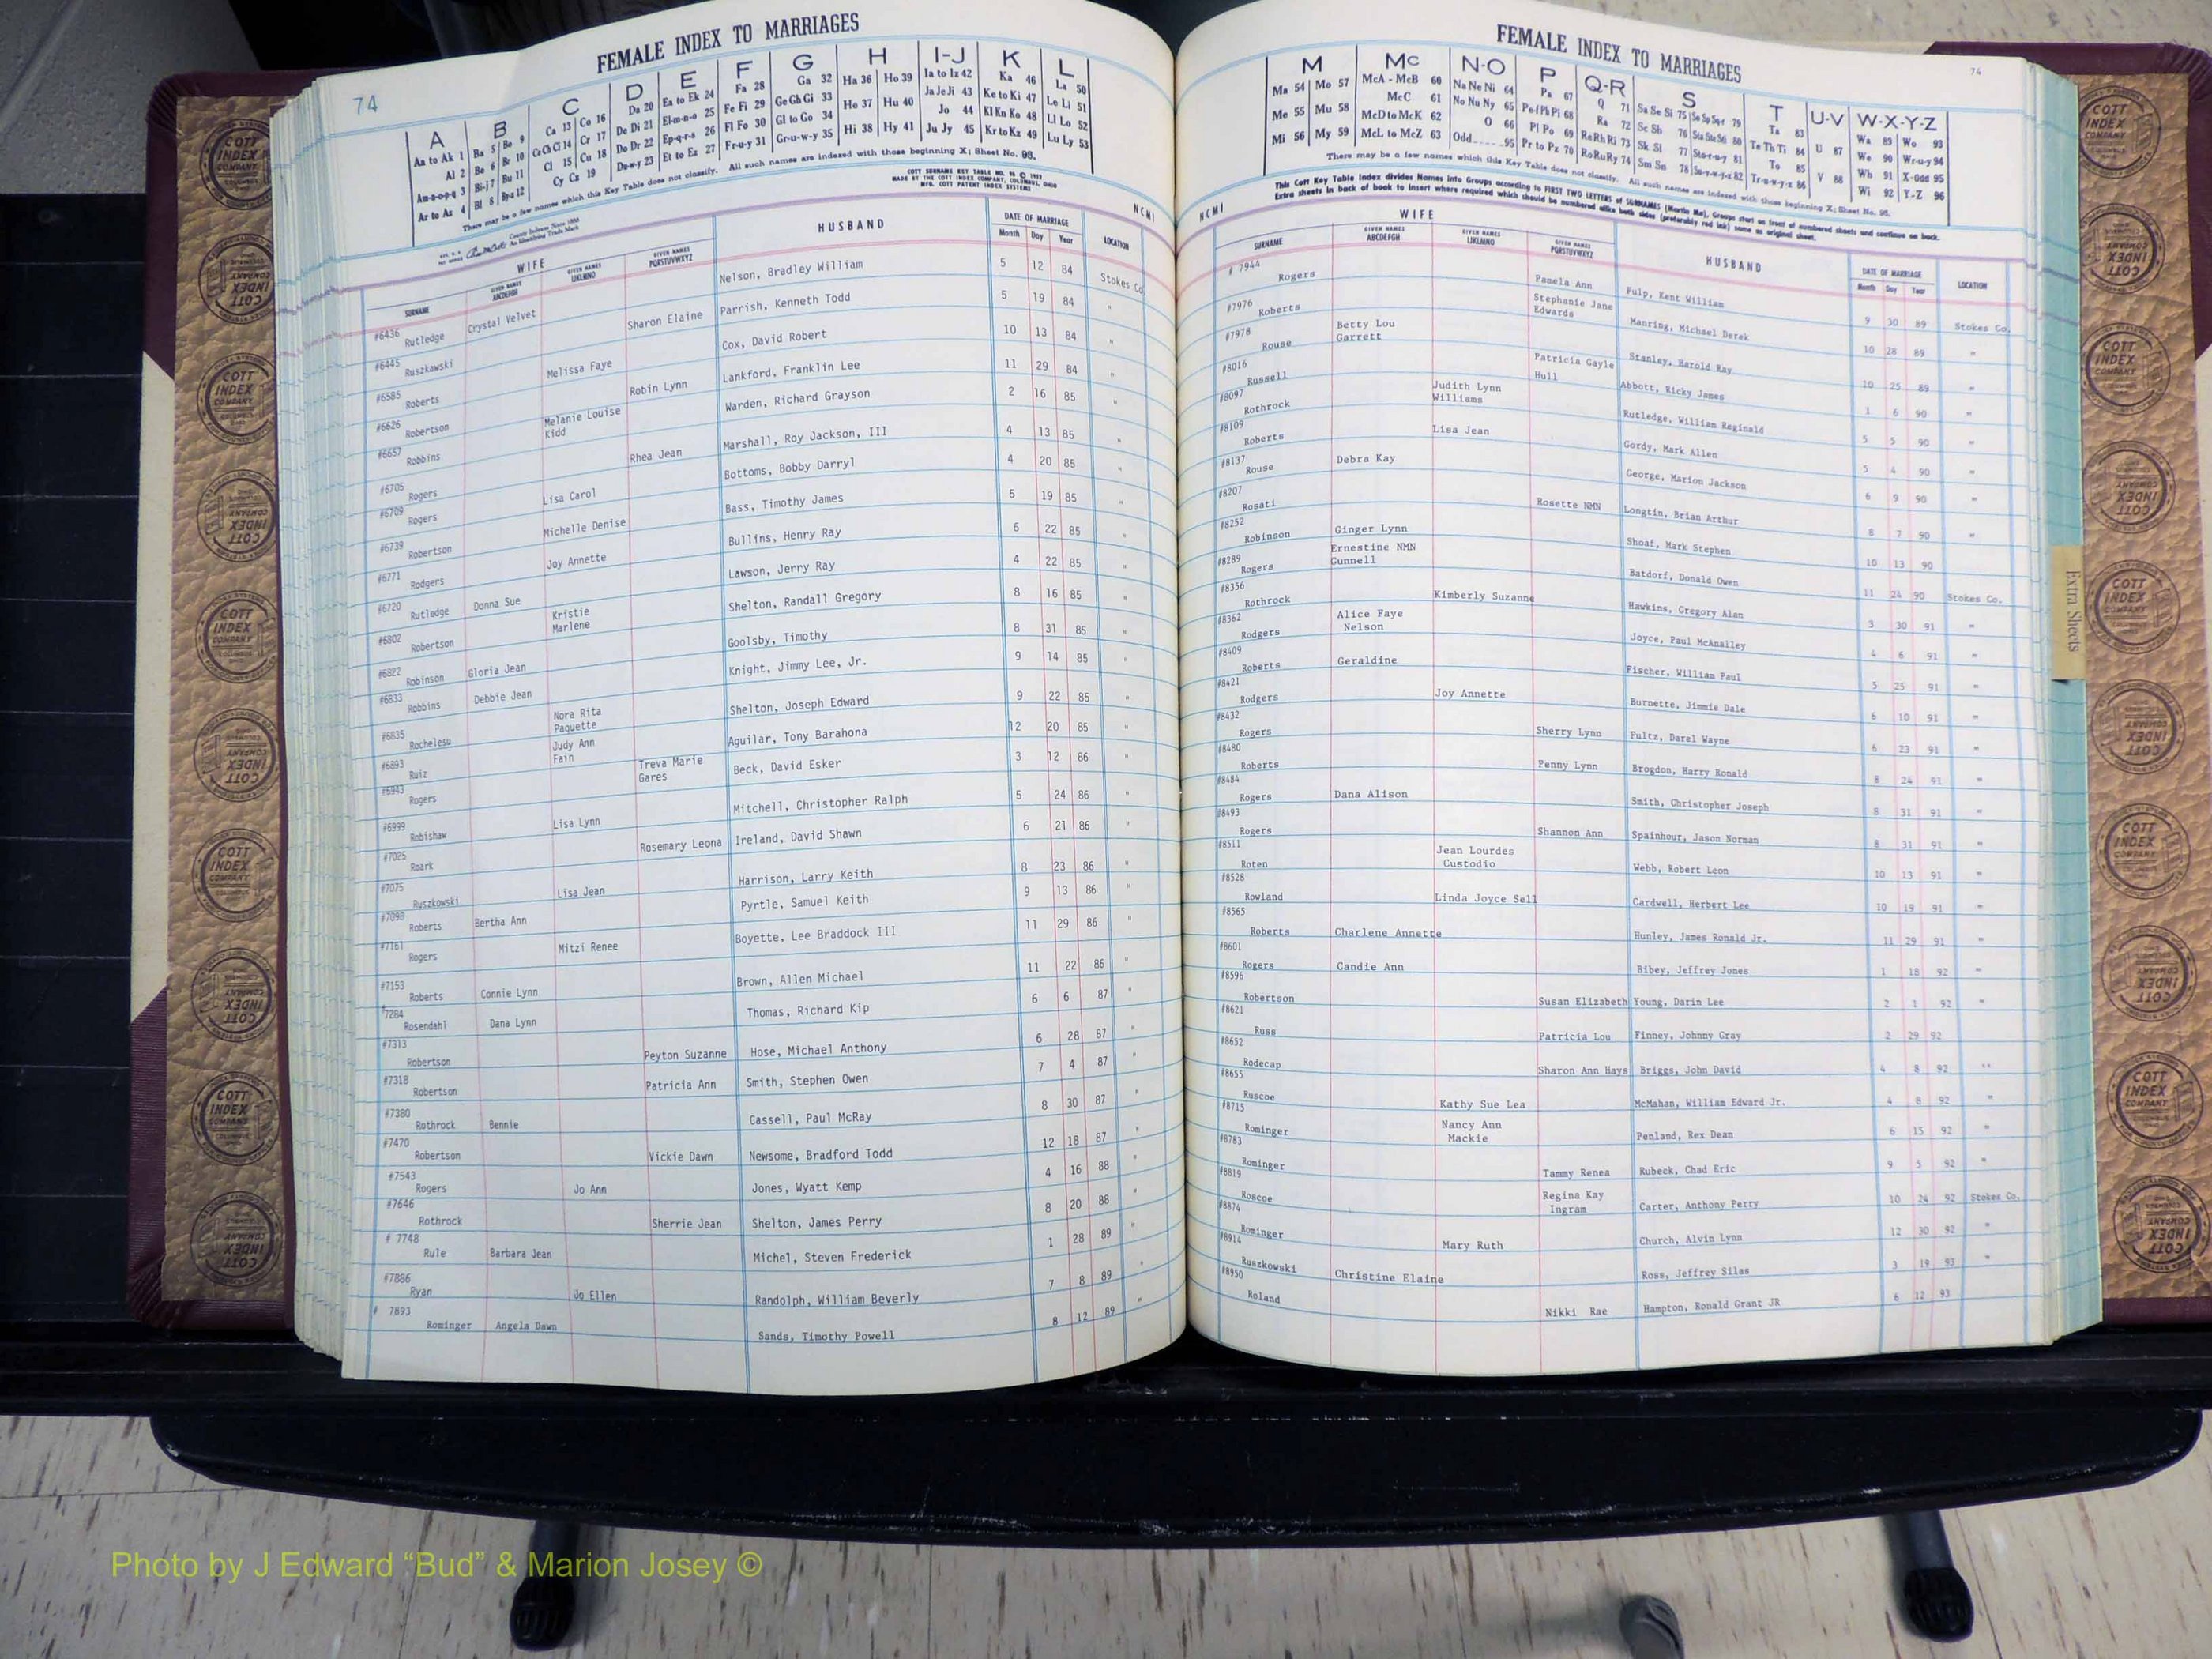 FEMALE INDEX TO MARRIAGES
74
A B C D E F G H I-J K L
Aa to Ak 1 Ba 5 Be 9 Ca 13 Co 16 Da 20 Ea to Ek 24 Fa 28 Ga 32 Ha 36 Ho 39 Ia to Iz 42 Ka 46 La 50
Al 2 Be 6 Br 10 Ce Ch Ci 14 Cr 17 De Di 21 El-m-n-o 25 Fe Fi 29 Ge Gh Gi 33 He 37 Hu 40 Ja Je Ji 43 Ke to Ki 47 Le Li 51
Am-n-o-p-q 3 Bi-j 7 Bu 11 Cl 15 Cu 18 Do Dr 22 Ep-q-r-s 26 Fl Fo 30 Gl to Go 34 Hi 38 Hy 41 Jo 44 Kl Kn Ko 48 Ll Lo 52
Ar to Az 4 Bl 8 By-z 12 Cy Cz 19 Du-w-y 23 Et to Ez 27 Fr-u-y 31 Gr-u-w-y 35 Ju Jy 45 Kr to Kz 49 Lu Ly 53
There may be a few names which this Key Table does not classify. All such names are indexed with those beginning X; Sheet No. 95.
COTT SURNAME KEY TABLE
MADE BY THE COTT INDEX COMPANY, COLUMBUS, OHIO
MFG. COTT PATENT INDEX SYSTEMS
County Indexes Since 1888
An Identifying Trade Mark
NCMI
WIFE HUSBAND DATE OF MARRIAGE LOCATION
SURNAME GIVEN NAMES ABCDEFGH GIVEN NAMES IJKLMNO GIVEN NAMES PQRSTUVWXYZ Month Day Year
#6436 Rutledge Crystal Velvet Nelson, Bradley William 5 12 84 Stokes Co.
#6445 Ruszkowski Sharon Elaine Parrish, Kenneth Todd 5 19 84 "
#6585 Roberts Melissa Faye Cox, David Robert 10 13 84 "
#6626 Robertson Robin Lynn Lankford, Franklin Lee 11 29 84 "
#6657 Robbins Melanie Louise Kidd Warden, Richard Grayson 2 16 85 "
#6705 Rogers Rhea Jean Marshall, Roy Jackson, III 4 13 85 "
#6709 Rogers Lisa Carol Bottoms, Bobby Darryl 4 20 85 "
#6739 Robertson Michelle Denise Bass, Timothy James 5 19 85 "
#6771 Rodgers Joy Annette Bullins, Henry Ray 6 22 85 "
#6720 Rutledge Donna Sue Lawson, Jerry Ray 4 22 85 "
#6802 Robertson Kristie Marlene Shelton, Randall Gregory 8 16 85 "
#6822 Robinson Gloria Jean Goolsby, Timothy 8 31 85 "
#6833 Robbins Debbie Jean Knight, Jimmy Lee, Jr. 9 14 85 "
#6835 Rochelesu Nora Rita Paquette Shelton, Joseph Edward 9 22 85 "
#6893 Ruiz Judy Ann Fain Aguilar, Tony Barahona 12 20 85 "
#6943 Rogers Treva Marie Gares Beck, David Esker 3 12 86 "
#6999 Robishaw Lisa Lynn Mitchell, Christopher Ralph 5 24 86 "
#7025 Roark Rosemary Leona Ireland, David Shawn 6 21 86 "
#7075 Ruszkowski Lisa Jean Harrison, Larry Keith 8 23 86 "
#7098 Roberts Bertha Ann Pyrtle, Samuel Keith 9 13 86 "
#7161 Rogers Mitzi Renee Boyette, Lee Braddock III 11 29 86 "
#7153 Roberts Connie Lynn Brown, Allen Michael 11 22 86 "
#7284 Rosendahl Dana Lynn Thomas, Richard Kip 6 6 87 "
#7313 Robertson Peyton Suzanne Hose, Michael Anthony 6 28 87 "
#7318 Robertson Patricia Ann Smith, Stephen Owen 7 4 87 "
#7380 Rothrock Bennie Cassell, Paul McRay 8 30 87 "
#7470 Robertson Vickie Dawn Newsome, Bradford Todd 12 18 87 "
#7543 Rogers Jo Ann Jones, Wyatt Kemp 4 16 88 "
#7646 Rothrock Sherrie Jean Shelton, James Perry 8 20 88 "
# 7748 Rule Barbara Jean Michel, Steven Frederick 1 28 89 "
#7886 Ryan Jo Ellen Randolph, William Beverly 7 8 89 "
# 7893 Rominger Angela Dawn Sands, Timothy Powell 8 12 89 "
FEMALE INDEX TO MARRIAGES
74
M Mc N-O P Q-R S T U-V W-X-Y-Z
Ma 54 Mo 57 McA - McB 60 Na Ne Ni 64 Pa 67 Q 71 Sa Se Si 75 So Sp Sq-r 79 Ta 83 U 87 Wa 89 Wo 93
Me 55 Mu 58 McC 61 No Nu Ny 65 Pe-f Ph Pi 68 Ra 72 Sc Sh 76 Sta Ste Sti 80 Te Th Ti 84 V 88 We 90 Wr-u-y 94
Mi 56 My 59 McD to McK 62 O 66 Pl Po 69 Re Rh Ri 73 Sk Sl 77 Sto-r-u-y 81 To 85 Wh 91 X-Odd 95
McL to McZ 63 Odd......95 Pr to Pz 70 Ro Ru Ry 74 Sm Sn 78 Su-v-w-y-z 82 Tr-u-w-y-z 86 Wi 92 Y-Z 96
There may be a few names which this Key Table does not classify. All such names are indexed with those beginning X; Sheet No. 95.
This Cott Key Table Index divides Names into Groups according to FIRST TWO LETTERS of SURNAMES (Martin Ma), Groups start on front of numbered sheets and continue on back.
Extra sheets in back of book to insert where required which should be numbered alike both sides (preferably red ink) same as original sheet.
NCMI
WIFE HUSBAND DATE OF MARRIAGE LOCATION
SURNAME GIVEN NAMES ABCDEFGH GIVEN NAMES IJKLMNO GIVEN NAMES PQRSTUVWXYZ Month Day Year
# 7944 Rogers Pamela Ann Fulp, Kent William 9 30 89 Stokes Co.
#7976 Roberts Stephanie Jane Edwards Manring, Michael Derek 10 28 89 "
#7978 Rouse Betty Lou Garrett Stanley, Harold Ray 10 25 89 "
#8016 Russell Patricia Gayle Hull Abbott, Ricky James 1 6 90 "
#8097 Rothrock Judith Lynn Williams Rutledge, William Reginald 5 5 90 "
#8109 Roberts Lisa Jean Gordy, Mark Allen 5 4 90 "
#8137 Rouse Debra Kay George, Marion Jackson 6 9 90 "
#8207 Rosati Rosette NMN Longtin, Brian Arthur 8 7 90 "
#8252 Robinson Ginger Lynn Shoaf, Mark Stephen 10 13 90
#8289 Rogers Ernestine NMN Gunnell Batdorf, Donald Owen 11 24 90 Stokes Co.
#8356 Rothrock Kimberly Suzanne Hawkins, Gregory Alan 3 30 91 "
#8362 Rodgers Alice Faye Nelson Joyce, Paul McAnalley 4 6 91 "
#8409 Roberts Geraldine Fischer, William Paul 5 25 91 "
#8421 Rodgers Joy Annette Burnette, Jimmie Dale 6 10 91 "
#8432 Rogers Sherry Lynn Fultz, Darel Wayne 6 23 91 "
#8480 Roberts Penny Lynn Brogdon, Harry Ronald 8 24 91 "
#8484 Rogers Dana Alison Smith, Christopher Joseph 8 31 91 "
#8493 Rogers Shannon Ann Spainhour, Jason Norman 8 31 91 "
#8511 Roten Jean Lourdes Custodio Webb, Robert Leon 10 13 91 "
#8528 Rowland Linda Joyce Sell Cardwell, Herbert Lee 10 19 91 "
#8565 Roberts Charlene Annette Hunley, James Ronald Jr. 11 29 91 "
#8601 Rogers Candie Ann Bibey, Jeffrey Jones 1 18 92 "
#8596 Robertson Susan Elizabeth Young, Darin Lee 2 1 92 "
#8621 Russ Patricia Lou Finney, Johnny Gray 2 29 92
#8652 Rodecap Sharon Ann Hays Briggs, John David 4 8 92 "
#8655 Ruscoe Kathy Sue Lea McMahan, William Edward Jr. 4 8 92 "
#8715 Rominger Nancy Ann Mackie Penland, Rex Dean 6 15 92 "
#8783 Rominger Tammy Renea Rubeck, Chad Eric 9 5 92 "
#8819 Roscoe Regina Kay Ingram Carter, Anthony Perry 10 24 92 Stokes Co.
#8874 Rominger Mary Ruth Church, Alvin Lynn 12 30 92 "
#8914 Ruszkowski Christine Elaine Ross, Jeffrey Silas 3 19 93 "
#8950 Roland Nikki Rae Hampton, Ronald Grant JR 6 12 93
Extra Sheets
COTT INDEX COMPANY
Photo by J Edward “Bud” & Marion Josey ©